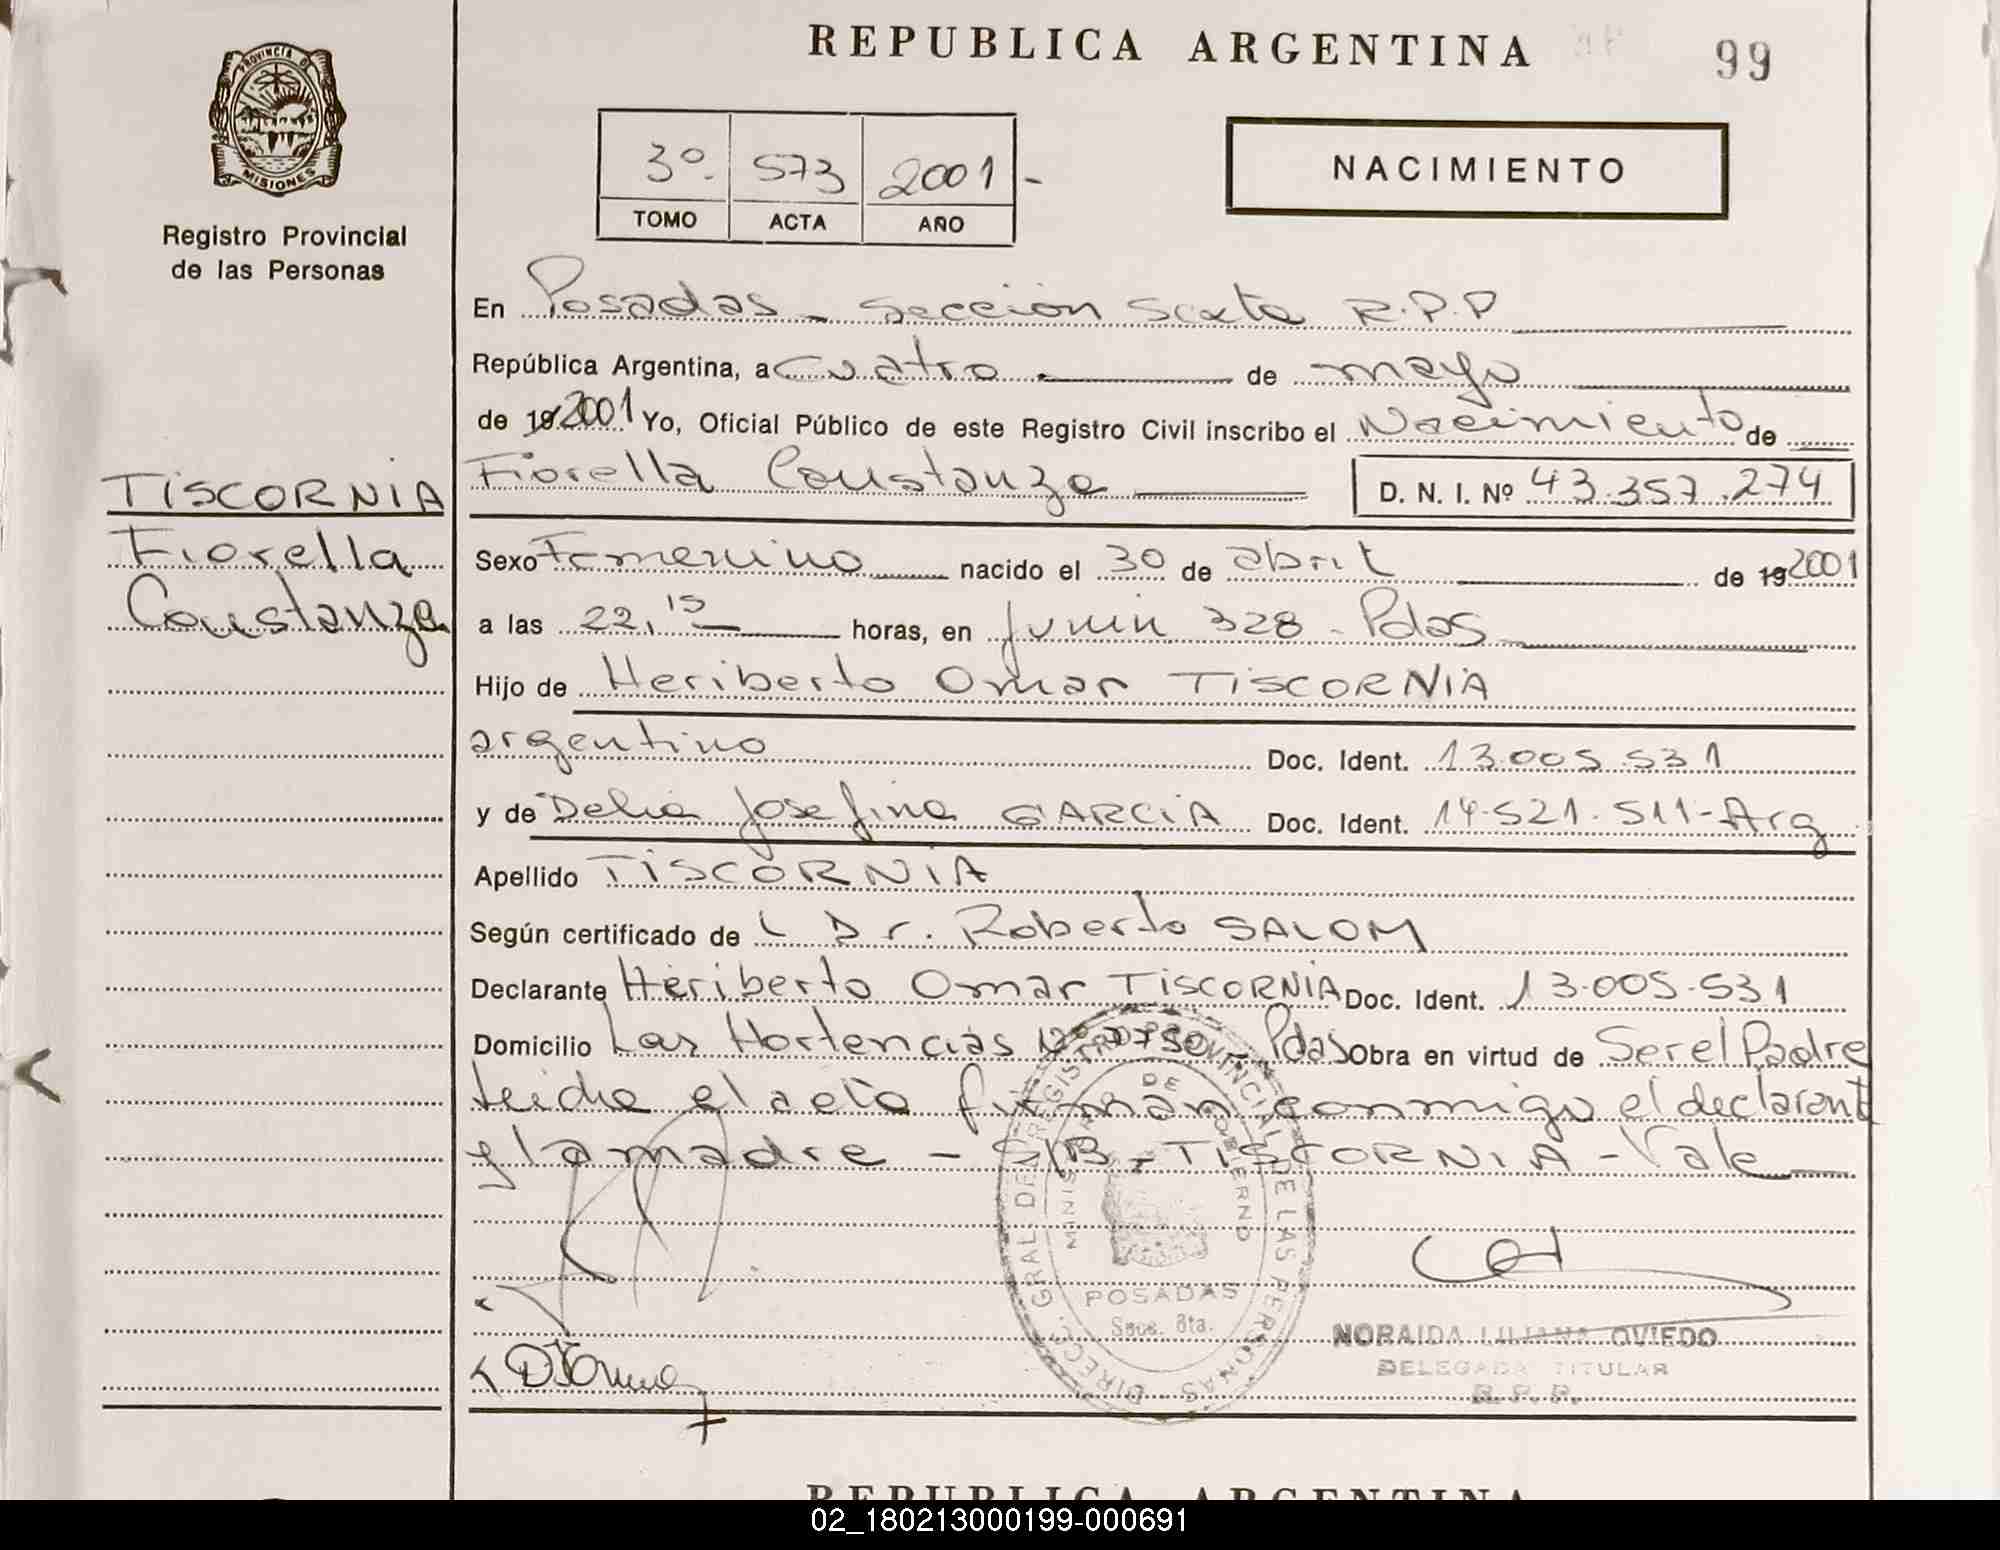 REPUBLICA ARGENTINA
99
PROVINCIA DE MISIONES
Registro Provincial
de las Personas
3º. 573 2001 -
TOMO ACTA AÑO
NACIMIENTO
En Posadas - Sección Sexta R.P.P
República Argentina, a Cuatro de mayo
de 19 2001 Yo, Oficial Público de este Registro Civil inscribo el Nacimiento de
Fiorella Constanza D. N. I. Nº 43.357.274
TISCORNIA
Fiorella
Constanza
Sexo Femenino nacido el 30 de abril de 19 2001
a las 22,15 horas, en Junin 328 - Pdas
Hijo de Heriberto Omar TISCORNIA
argentino Doc. Ident. 13.005.531
y de Delia Josefina GARCIA Doc. Ident. 14.521.511-Arg
Apellido TISCORNIA
Según certificado de L Dr. Roberto SALOM
Declarante Heriberto Omar TISCORNIA Doc. Ident. 13.005.531
Domicilio Las Hortencias Pdas Obra en virtud de Ser el Padre
leida el acta firman conmigo el declarant
y la madre - S/B - TISCORNIA - Vale
DIRECC. GRAL. DEL REGISTRO PROVINCIAL DE LAS PERSONAS
MINISTERIO DE GOBIERNO
POSADAS
Secc. 6ta.
NORAIDA LILIANA OVIEDO
DELEGADA TITULAR
R.P.P.
REPUBLICA ARGENTINA
02_180213000199-000691